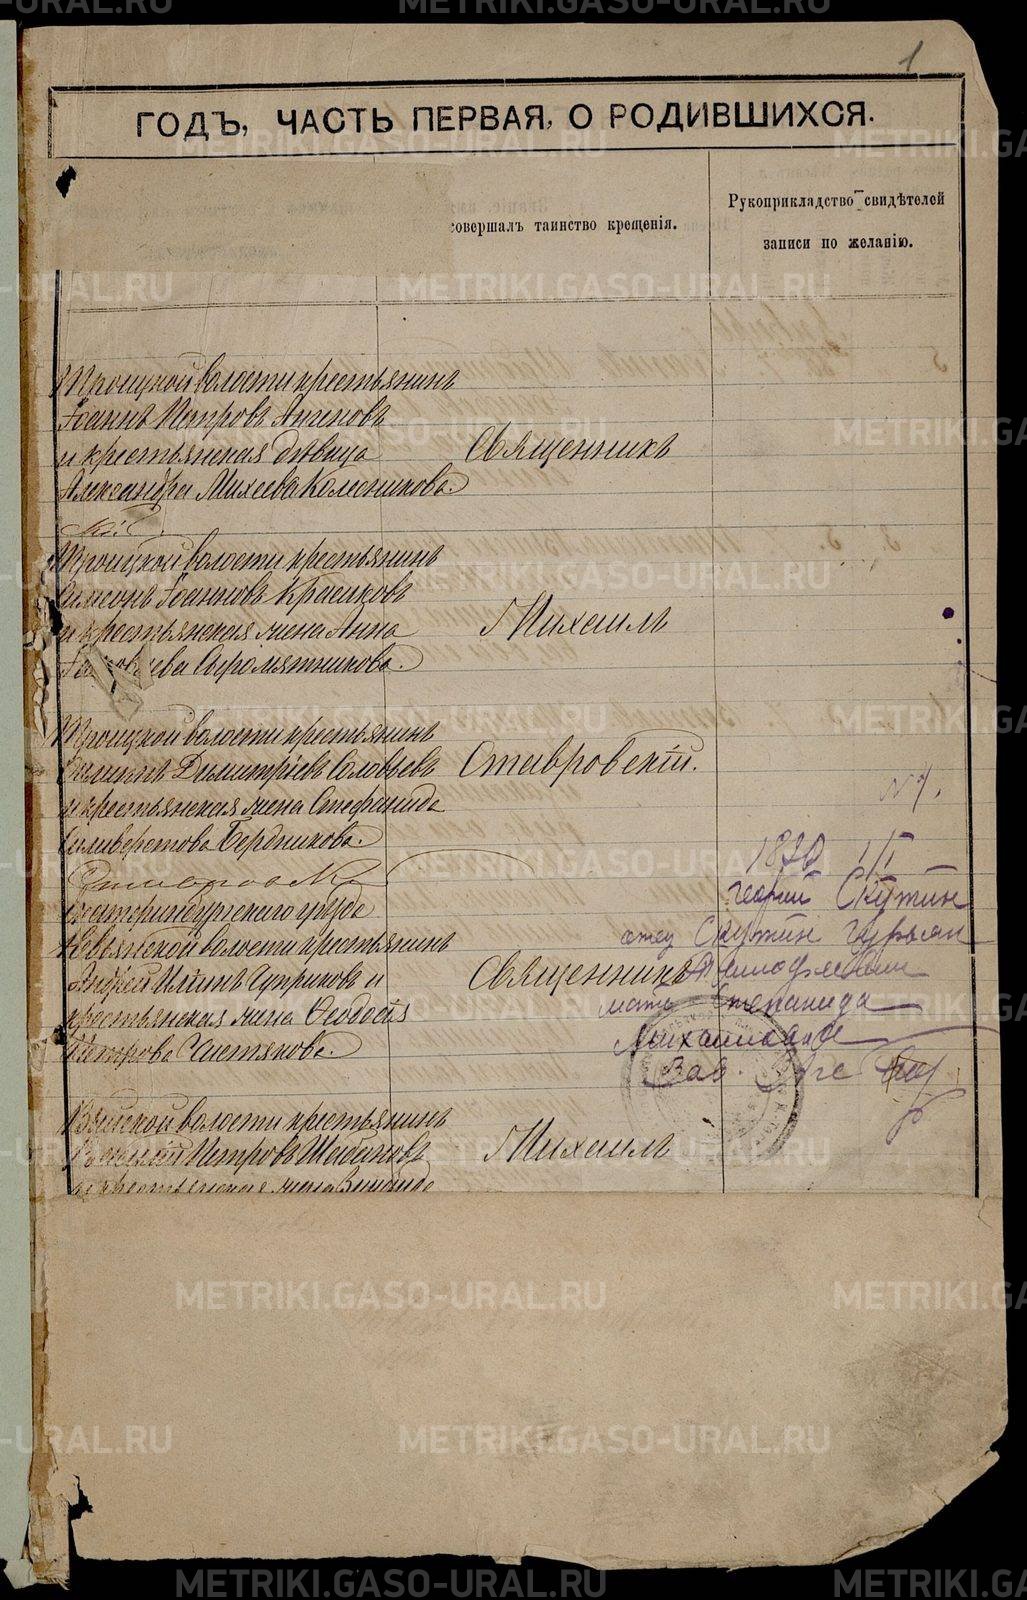 1
ГОДЪ, ЧАСТЬ ПЕРВАЯ, О РОДИВШИХСЯ.
совершалъ таинство крещенія.
Рукоприкладство свидѣтелей
записи по желанію.
Троицкой волости крестьянинъ
Іоаннъ Петровъ
и крестьянская дѣвица
Александра Михеева Колесникова.
Троицкой волости крестьянинъ
Симеонъ Іоанновъ Красиковъ
и крестьянская жена Анна
Сыромятникова.
Троицкой волости крестьянинъ
Филиппъ Димитріевъ Соловьевъ
и крестьянская жена Стефанида
Селиверстова Бердникова.
Екатеринбургскаго уѣзда
Невьянской волости крестьянинъ
Андрей Ильинъ Чуприковъ и
крестьянская жена Ѳеодосія
Петрова Чистякова.
Выйской волости крестьянинъ
Василій Петровъ Шабановъ
и крестьянская жена
Священникъ
Михаилъ
Ставровскій.
Священникъ
Михаилъ
№ 1.
1/I
Георгий Скутин
отец Скутин Гурьян
мать Степанида
Михайловна
Зав.
METRIKI.GASO-URAL.RU